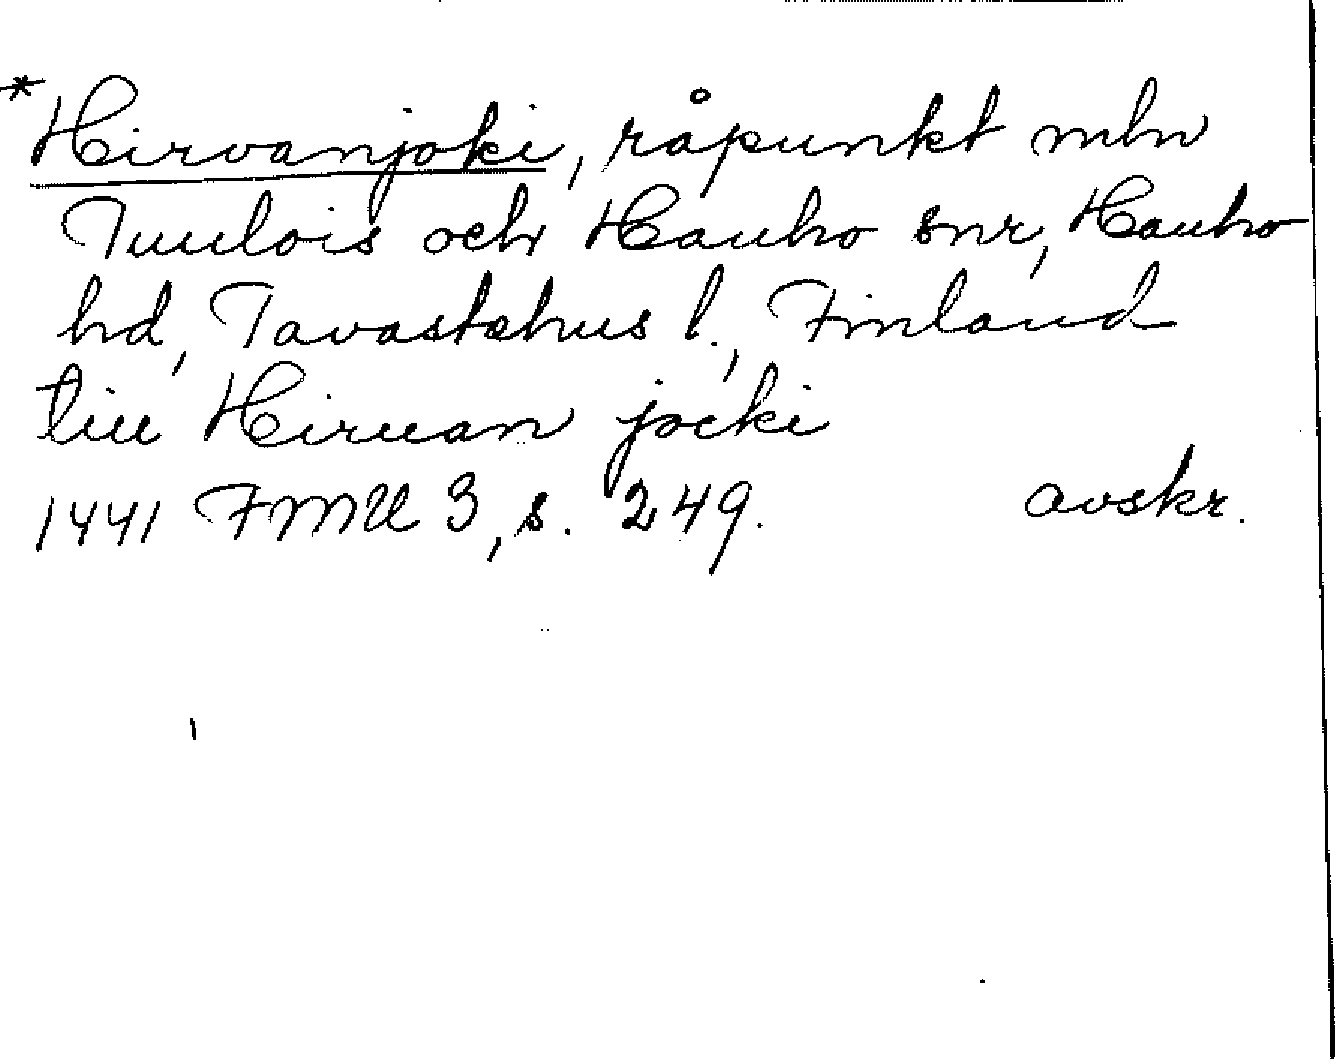 *Hirvanjoki, råpunkt mln
Tuulois och Hauho snr, Hauho
hd, Tavastehus l., Finland
till Hiruan jocki
1441 FMU 3, s. 249. avskr.